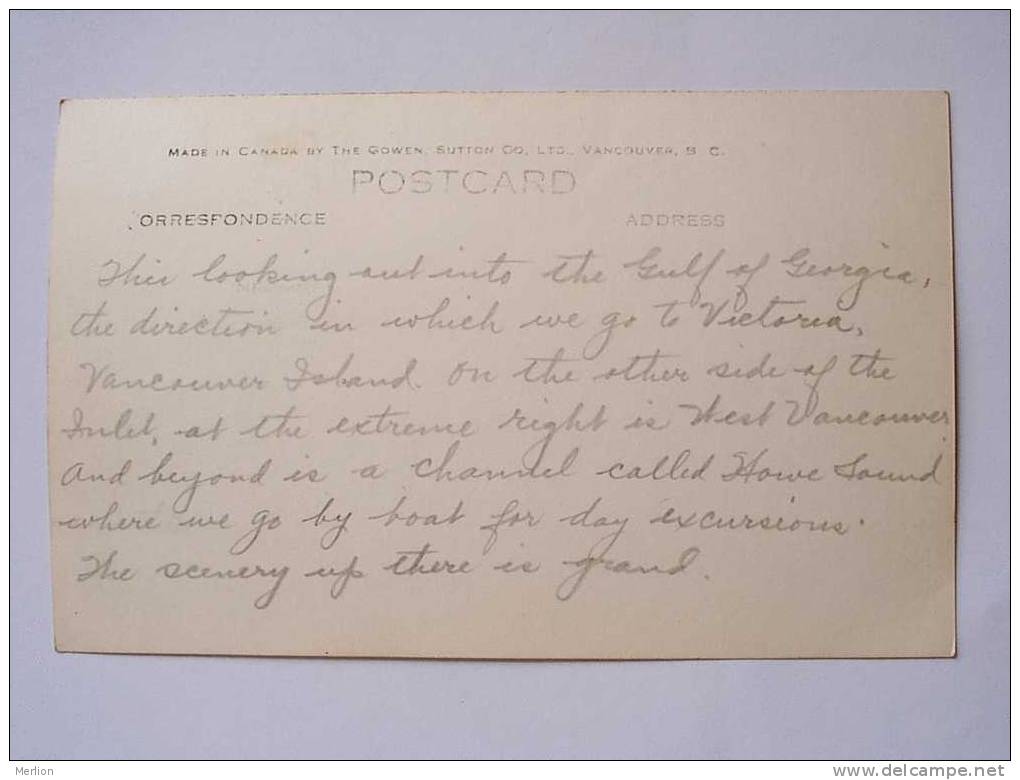 MADE IN CANADA BY THE GOWEN, SUTTON CO. LTD., VANCOUVER, B C.
POSTCARD
ORRESPONDENCE ADDRESS
This looking out into the Gulf of Georgia,
the direction in which we go to Victoria,
Vancouver Island. On the other side of the
Inlet, at the extreme right is West Vancouver
And beyond is a channel called Howe Sound
where we go by boat for day excursions.
The scenery up there is grand.
Merlion delcampe.net